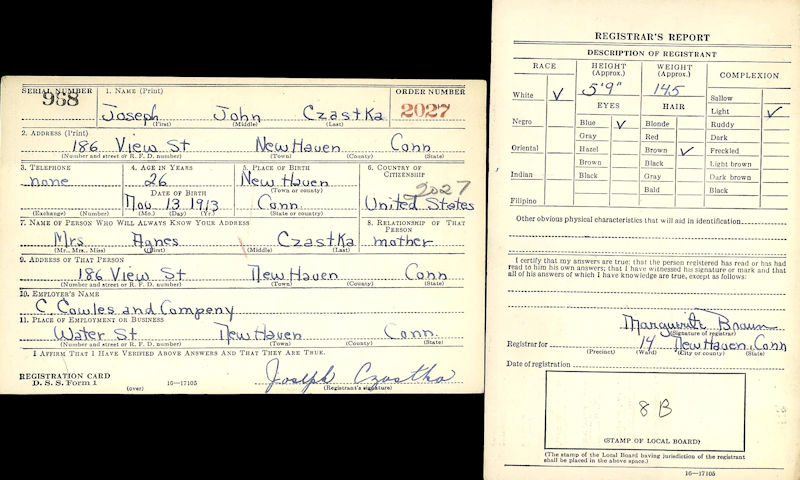 SERIAL NUMBER 1. NAME (Print) ORDER NUMBER
988 Joseph John Czastka 2027
(First) (Middle) (Last)
2. ADDRESS (Print)
186 View St New Haven Conn
(Number and street or R. F. D. number) (Town) (County) (State)
3. TELEPHONE 4. AGE IN YEARS 5. PLACE OF BIRTH 6. COUNTRY OF CITIZENSHIP
none 26 New Haven 2027
DATE OF BIRTH (Town or county)
Nov 13 1913 Conn United States
(Exchange) (Number) (Mo.) (Day) (Yr.) (State or country)
7. NAME OF PERSON WHO WILL ALWAYS KNOW YOUR ADDRESS 8. RELATIONSHIP OF THAT PERSON
Mrs. Agnes Czastka mother
(Mr., Mrs., Miss) (First) (Middle) (Last)
9. ADDRESS OF THAT PERSON
186 View St New Haven Conn
(Number and street or R. F. D. number) (Town) (County) (State)
10. EMPLOYER'S NAME
C. Cowles and Company
11. PLACE OF EMPLOYMENT OR BUSINESS
Water St New Haven Conn.
(Number and street or R. F. D. number) (Town) (County) (State)
I AFFIRM THAT I HAVE VERIFIED ABOVE ANSWERS AND THAT THEY ARE TRUE.
REGISTRATION CARD Joseph Czastka
D. S. S. Form 1 (over) 16—17105 (Registrant's signature)
REGISTRAR'S REPORT
DESCRIPTION OF REGISTRANT
RACE HEIGHT (Approx.) WEIGHT (Approx.) COMPLEXION
White ✓ 5'9" 145 Sallow
EYES HAIR Light ✓
Negro Blue ✓ Blonde Ruddy
Gray Red Dark
Oriental Hazel Brown ✓ Freckled
Brown Black Light brown
Indian Black Gray Dark brown
Bald Black
Filipino
Other obvious physical characteristics that will aid in identification
I certify that my answers are true; that the person registered has read or has had
read to him his own answers; that I have witnessed his signature or mark and that
all of his answers of which I have knowledge are true, except as follows:
Marguerite Braun
(Signature of registrar)
Registrar for 14 New Haven, Conn
(Precinct) (Ward) (City or county) (State)
Date of registration
8 B
(STAMP OF LOCAL BOARD)
(The stamp of the Local Board having jurisdiction of the registrant
shall be placed in the above space.)
16—17105